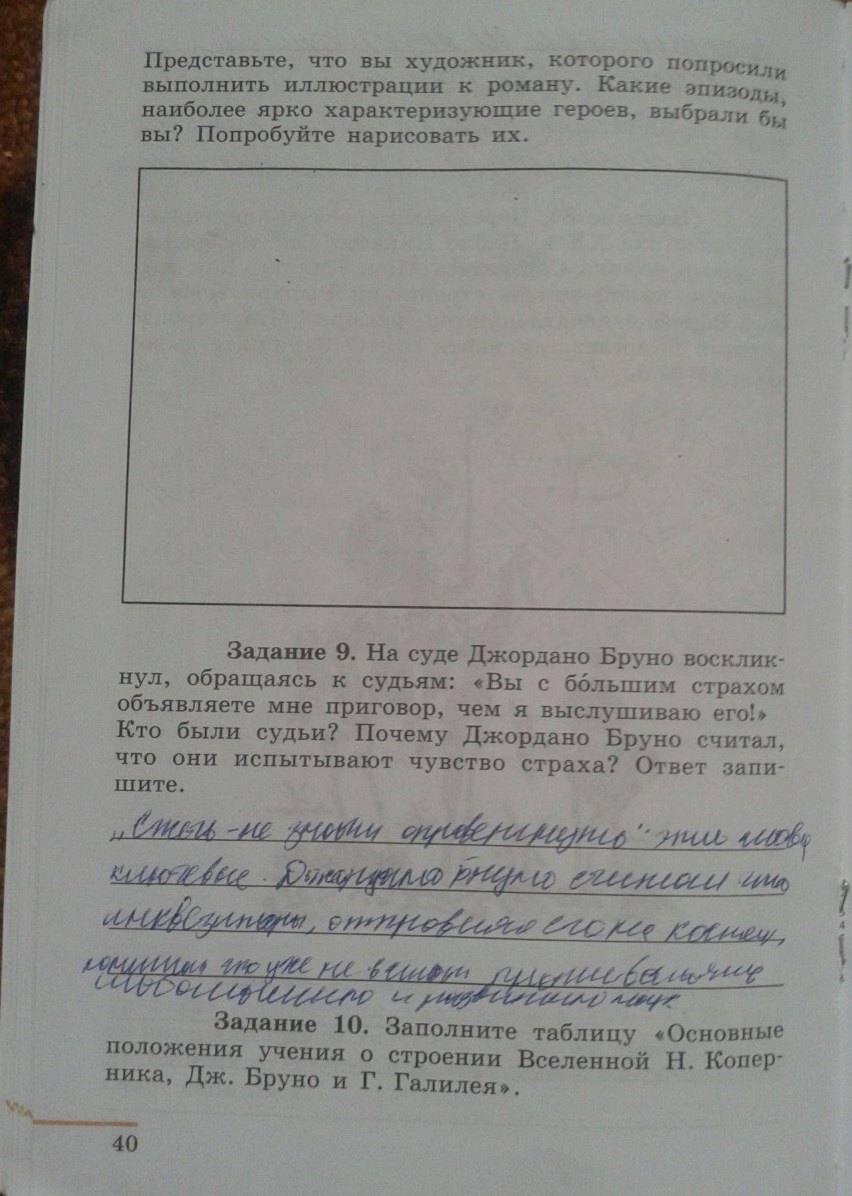 Представьте, что вы художник, которого попросили
выполнить иллюстрации к роману. Какие эпизоды,
наиболее ярко характеризующие героев, выбрали бы
вы? Попробуйте нарисовать их.
Задание 9. На суде Джордано Бруно восклик-
нул, обращаясь к судьям: «Вы с бо́льшим страхом
объявляете мне приговор, чем я выслушиваю его!»
Кто были судьи? Почему Джордано Бруно считал,
что они испытывают чувство страха? Ответ запи-
шите.
„Сжечь - не значит опровергнуть" эти слова
ключевые. Джордано Бруно считал что
инквизиторы, отправляя его на костер,
уже не в
и развитию наук
Задание 10. Заполните таблицу «Основные
положения учения о строении Вселенной Н. Копер-
ника, Дж. Бруно и Г. Галилея».
40